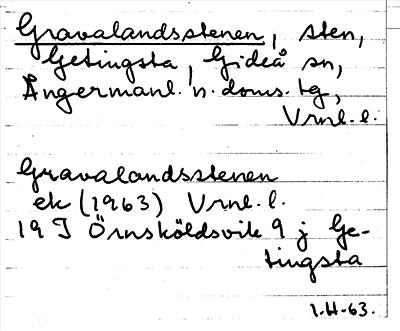 Gravalandsstenen, sten,
Getingsta, Gideå sn,
Ångermanl. n. doms. tg,
Vrnl. l.
Gravalandsstenen
ek (1963) Vrnl. l.
19 J Örnsköldsvik 9 j Ge-
tingsta
1.H-63.